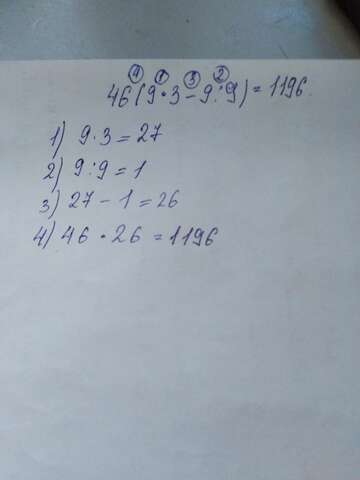 ④ ① ③ ②
46(9·3-9:9)=1196
1) 9·3=27
2) 9:9=1
3) 27-1=26
4) 46·26=1196